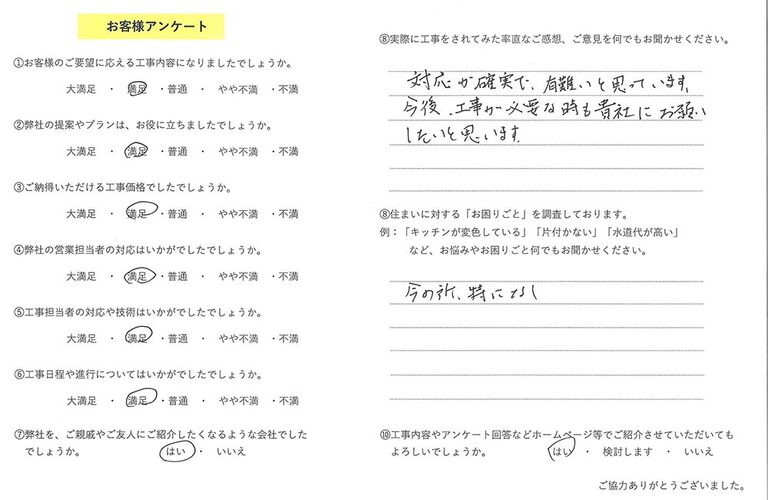 お客様アンケート
①お客様のご要望に応える工事内容になりましたでしょうか。
大満足 ・ 満足 ・普通 ・ やや不満 ・不満
②弊社の提案やプランは、お役に立ちましたでしょうか。
大満足 ・ 満足 ・普通 ・ やや不満 ・不満
③ご納得いただける工事価格でしたでしょうか。
大満足 ・ 満足 ・普通 ・ やや不満 ・不満
④弊社の営業担当者の対応はいかがでしたでしょうか。
大満足 ・ 満足 ・普通 ・ やや不満 ・不満
⑤工事担当者の対応や技術はいかがでしたでしょうか。
大満足 ・ 満足 ・普通 ・ やや不満 ・不満
⑥工事日程や進行についてはいかがでしたでしょうか。
大満足 ・ 満足 ・普通 ・ やや不満 ・不満
⑦弊社を、ご親戚やご友人にご紹介したくなるような会社でした
でしょうか。 はい ・ いいえ
⑧実際に工事をされてみた率直なご感想、ご意見を何でもお聞かせください。
対応が確実で、有難いと思っています。
今後、工事が必要な時も貴社にお願い
したいと思います。
⑧住まいに対する「お困りごと」を調査しております。
例：「キッチンが変色している」「片付かない」「水道代が高い」
など、お悩みやお困りごと何でもお聞かせください。
今の所、特になし
⑩工事内容やアンケート回答などホームページ等でご紹介させていただいても
よろしいでしょうか。 はい ・ 検討します ・ いいえ
ご協力ありがとうございました。